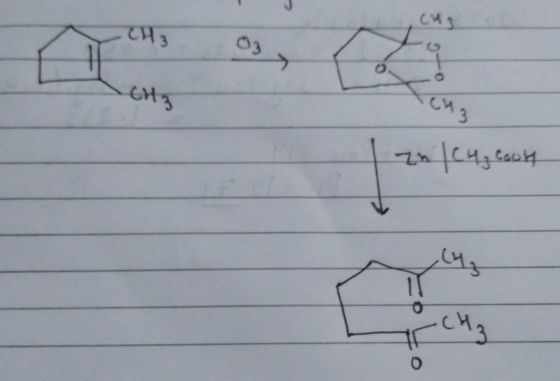 CH3
O3
CH3
CH3
O
O
O
CH3
Zn | CH3COOH
CH3
O
CH3
O